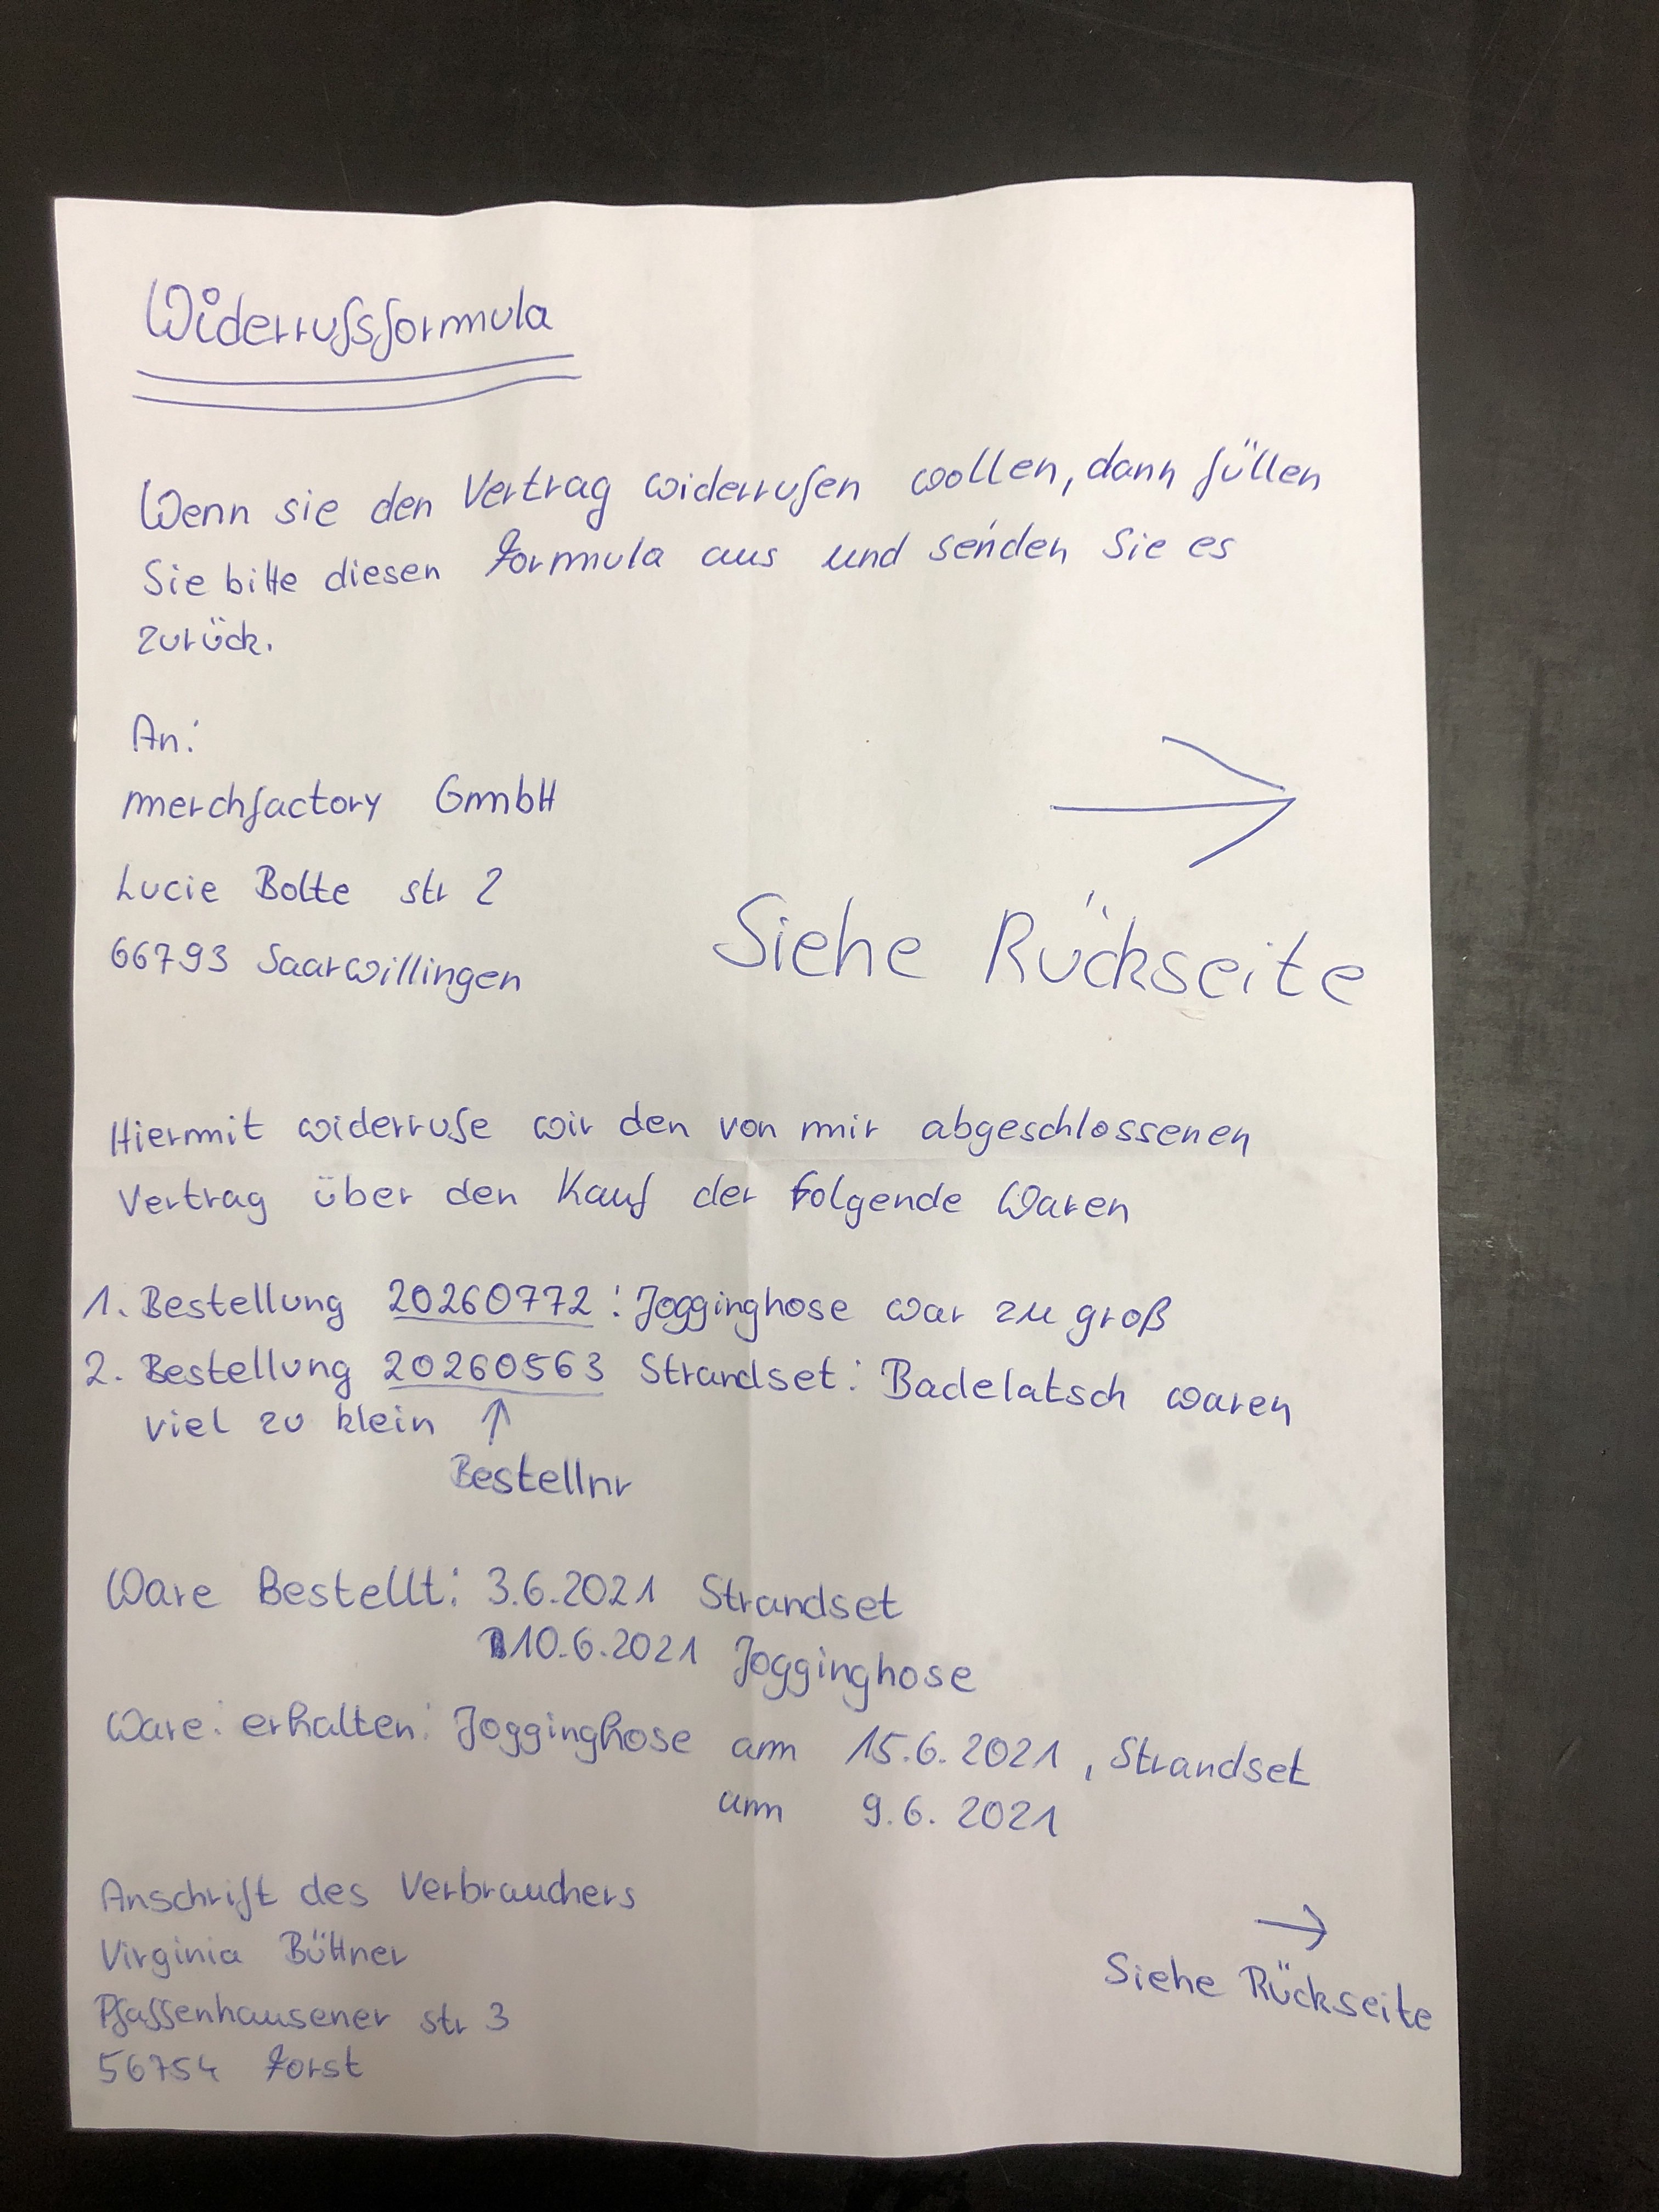 Widerrufsformula
Wenn sie den Vertrag widerrufen wollen, dann füllen
Sie bitte diesen Formula aus und senden Sie es
zurück.
An:
merchfactory GmbH
Lucie Bolte str 2
66793 Saarwillingen
Siehe Rückseite
Hiermit widerrufe wir den von mir abgeschlossenen
Vertrag über den Kauf der folgende Waren
1. Bestellung 20260772 : Jogginghose war zu groß
2. Bestellung 20260563 Strandset: Badelatsch waren
viel zu klein ↑
Bestellnr
Ware Bestellt: 3.6.2021 Strandset
10.6.2021 Jogginghose
Ware: erhalten: Jogginghose am 15.6.2021, Strandset
am 9.6.2021
Anschrift des Verbrauchers
Virginia Büttner
Pfaffenhausener str 3
56754 Forst
→
Siehe Rückseite